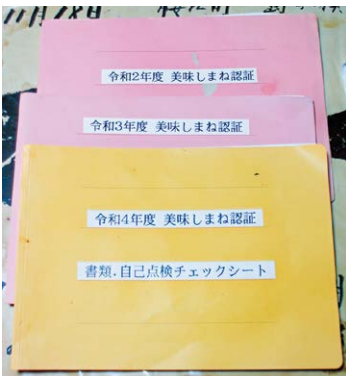 11月28日
令和2年度 美味しまね認証
令和3年度 美味しまね認証
令和4年度 美味しまね認証
書類.自己点検チェックシート